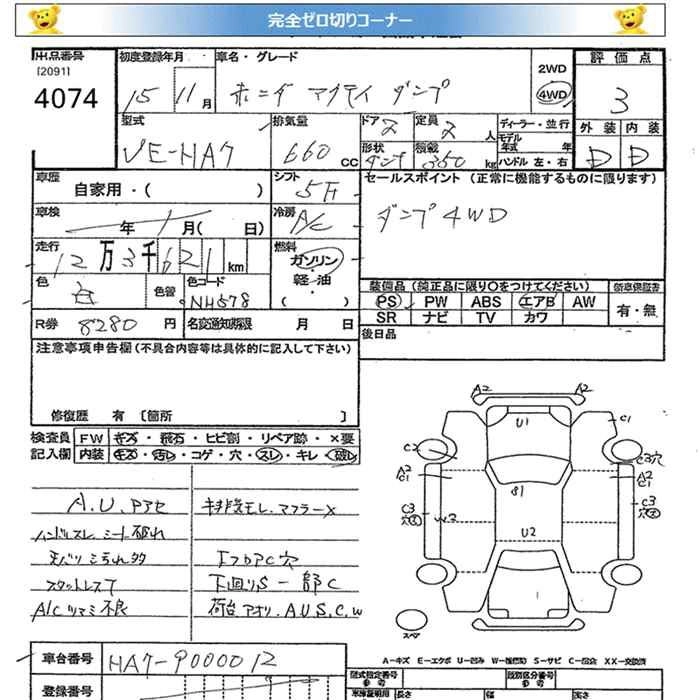 完全ゼロ切りコーナー
出品番号 初度登録年月 車名・グレード 評価点
[2091] 2WD
4074 15 11月 ホンダ アクティ ダンプ 4WD 3
型式 排気量 ドア 2 定員 2 人 ディーラー・並行 外装 内装
モデル年式 年
VE-HA7 660 CC 形状 ダンプ 積載 350 kg ハンドル 左・右 D D
車歴 自家用・( ) シフト 5F セールスポイント (正常に機能するものに限ります)
車検 年 月( 日) 冷房 A/C ダンプ 4WD
走行 12万3千621km 燃料 ガソリン・軽油・( )
色 白 色替 色コード NH578
装備品 (純正品に限り○をつけてください) 新車保証書
PS PW ABS エアB AW 有・無
SR ナビ TV カワ
R券 8280 円 名変通知期限 月 日 後日品
注意事項申告欄 (不具合内容等は具体的に記入して下さい)
修復歴 有 [箇所 ]
検査員 FW キズ・飛石・ヒビ割・リペア跡・×要
記入欄 内装 キズ・汚レ・コゲ・穴・スレ・キレ・破レ
A2 A2
U1 C1
C2 C3穴
A2 C1 A2 C1
S1 C3
W2
U2
A.U.Pアセ マフラーX
ハンドルスレ シート破れ
天バリ 汚れ多 エプロンC穴
スタットレスT 下廻りS 一部C
A/Cツマミ不良 荷台 アオリ.A.U.S.C.W
スペア
A-キズ E-エクボ U-凹み W-補修跡 S-サビ C-腐食 XX-交換済
車台番号 HA7-9000012
登録番号 型式指定番号 参考 類別区分番号 参考
車庫証明用 長さ 幅 高さ